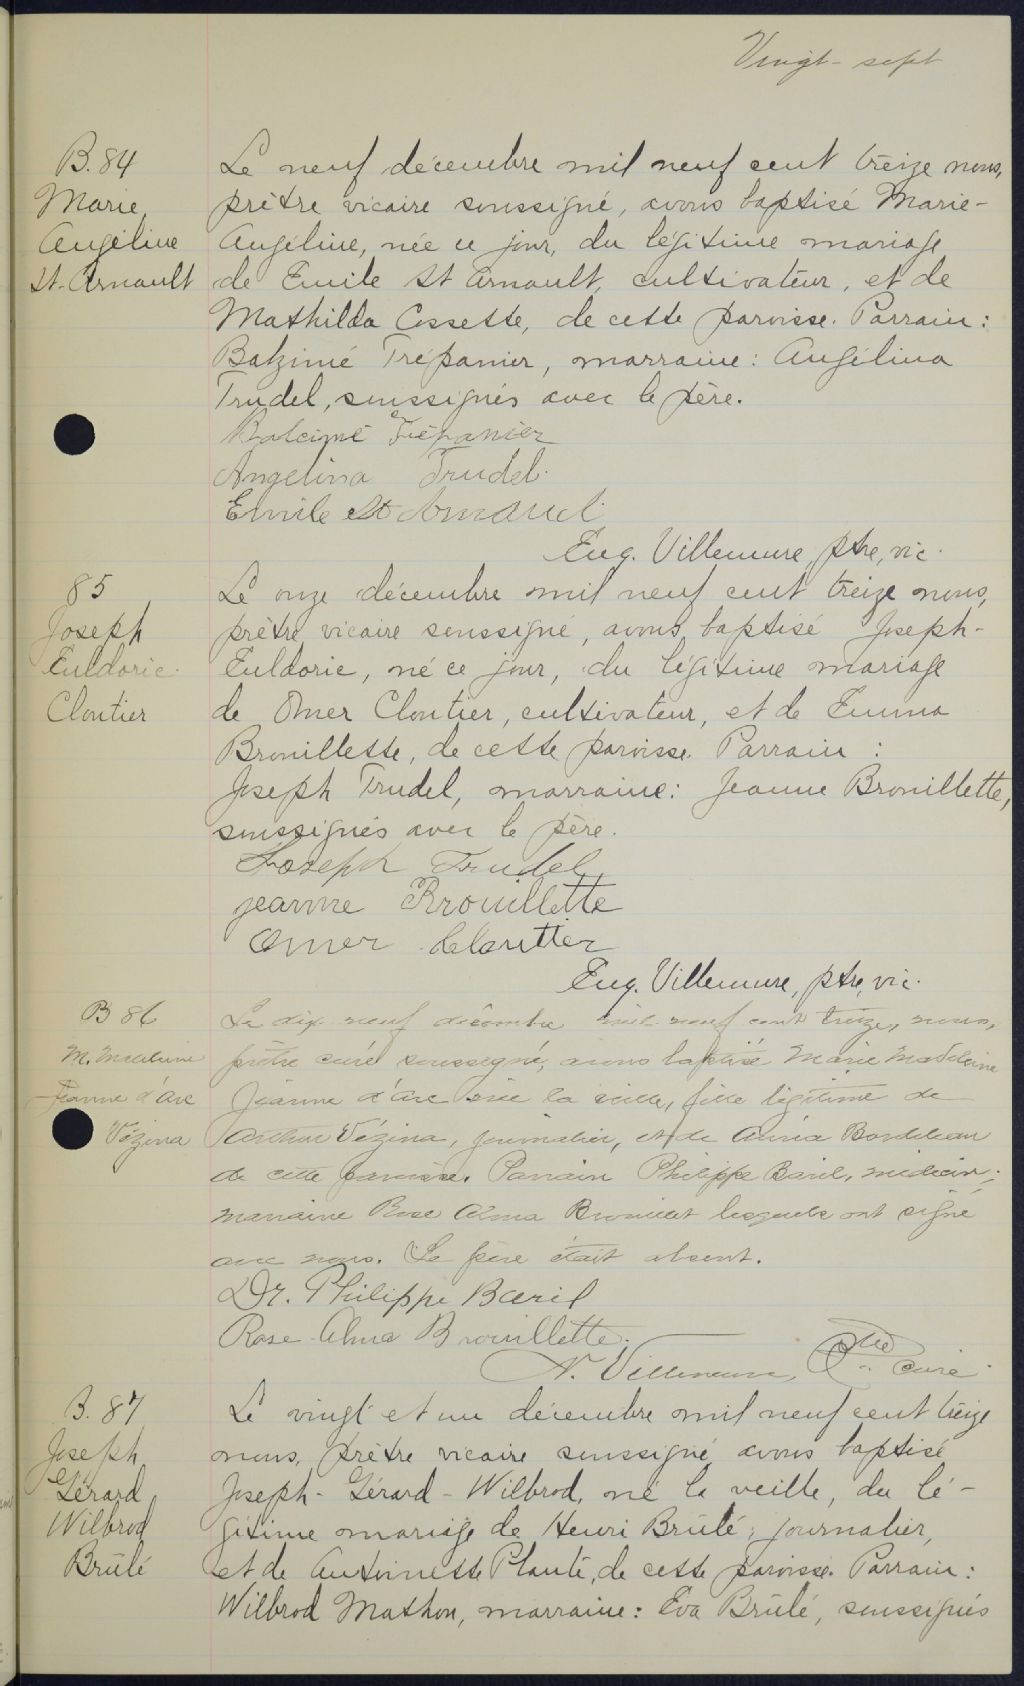 Vingt-sept
B. 84
Marie
Angéline
St-Arnault
Le neuf décembre mil neuf cent treize nous,
prêtre vicaire soussigné, avons baptisé Marie-
Angéline, née ce jour, du légitime mariage
de Emile St Arnault, cultivateur, et de
Mathilda Cossette, de cette paroisse. Parrain:
Balzimé Trépanier, marraine: Angélina
Trudel, soussignés avec le père.
Balcimé Trépanier
Angelina Trudel.
Emile St Arnaud
Eug. Villemure, ptre, vic.
85
Joseph
Euldoric
Cloutier
Le onze décembre mil neuf cent treize nous,
prêtre vicaire soussigné, avons baptisé Joseph-
Euldoric, né ce jour, du légitime mariage
de Omer Cloutier, cultivateur, et de Emma
Brouillette, de cette paroisse. Parrain :
Joseph Trudel, marraine: Jeanne Brouillette,
soussignés avec le père.
Joseph Trudel
jeanne Brouillette
Omer Cloutier
Eug. Villemure, ptre, vic.
B 86
M. Madeleine
Jeanne d'Arc
Vézina
Le dix neuf décembre mil neuf cent treize, nous,
prêtre curé soussigné, avons baptisé Marie Madeleine
Jeanne d'Arc née la veille, fille légitime de
Arthur Vézina, journalier, et de Anna Bordeleau
de cette paroisse. Parrain Philippe Baril, médecin;
marraine Rose Alma Brouillet lesquels ont signé
avec nous. Le père était absent.
Dr. Philippe Baril
Rose-Alma Brouillette.
N. Villemure, Ptre curé
B. 87
Joseph
Gérard
Wilbrod
Brûlé
Le vingt et un décembre mil neuf cent treize
nous, prêtre vicaire soussigné avons baptisé
Joseph-Gérard-Wilbrod, né la veille, du lé-
gitime mariage de Henri Brûlé, journalier,
et de Antoinette Plante, de cette paroisse. Parrain:
Wilbrod Mathon, marraine: Eva Brûlé, soussignés